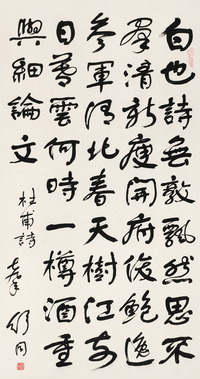 白也詩無敵飄然思不
羣清新庾開府俊鮑逸
参軍渭北春天樹江東
日暮雲何時一樽酒重
與細論文
杜甫詩
舒同